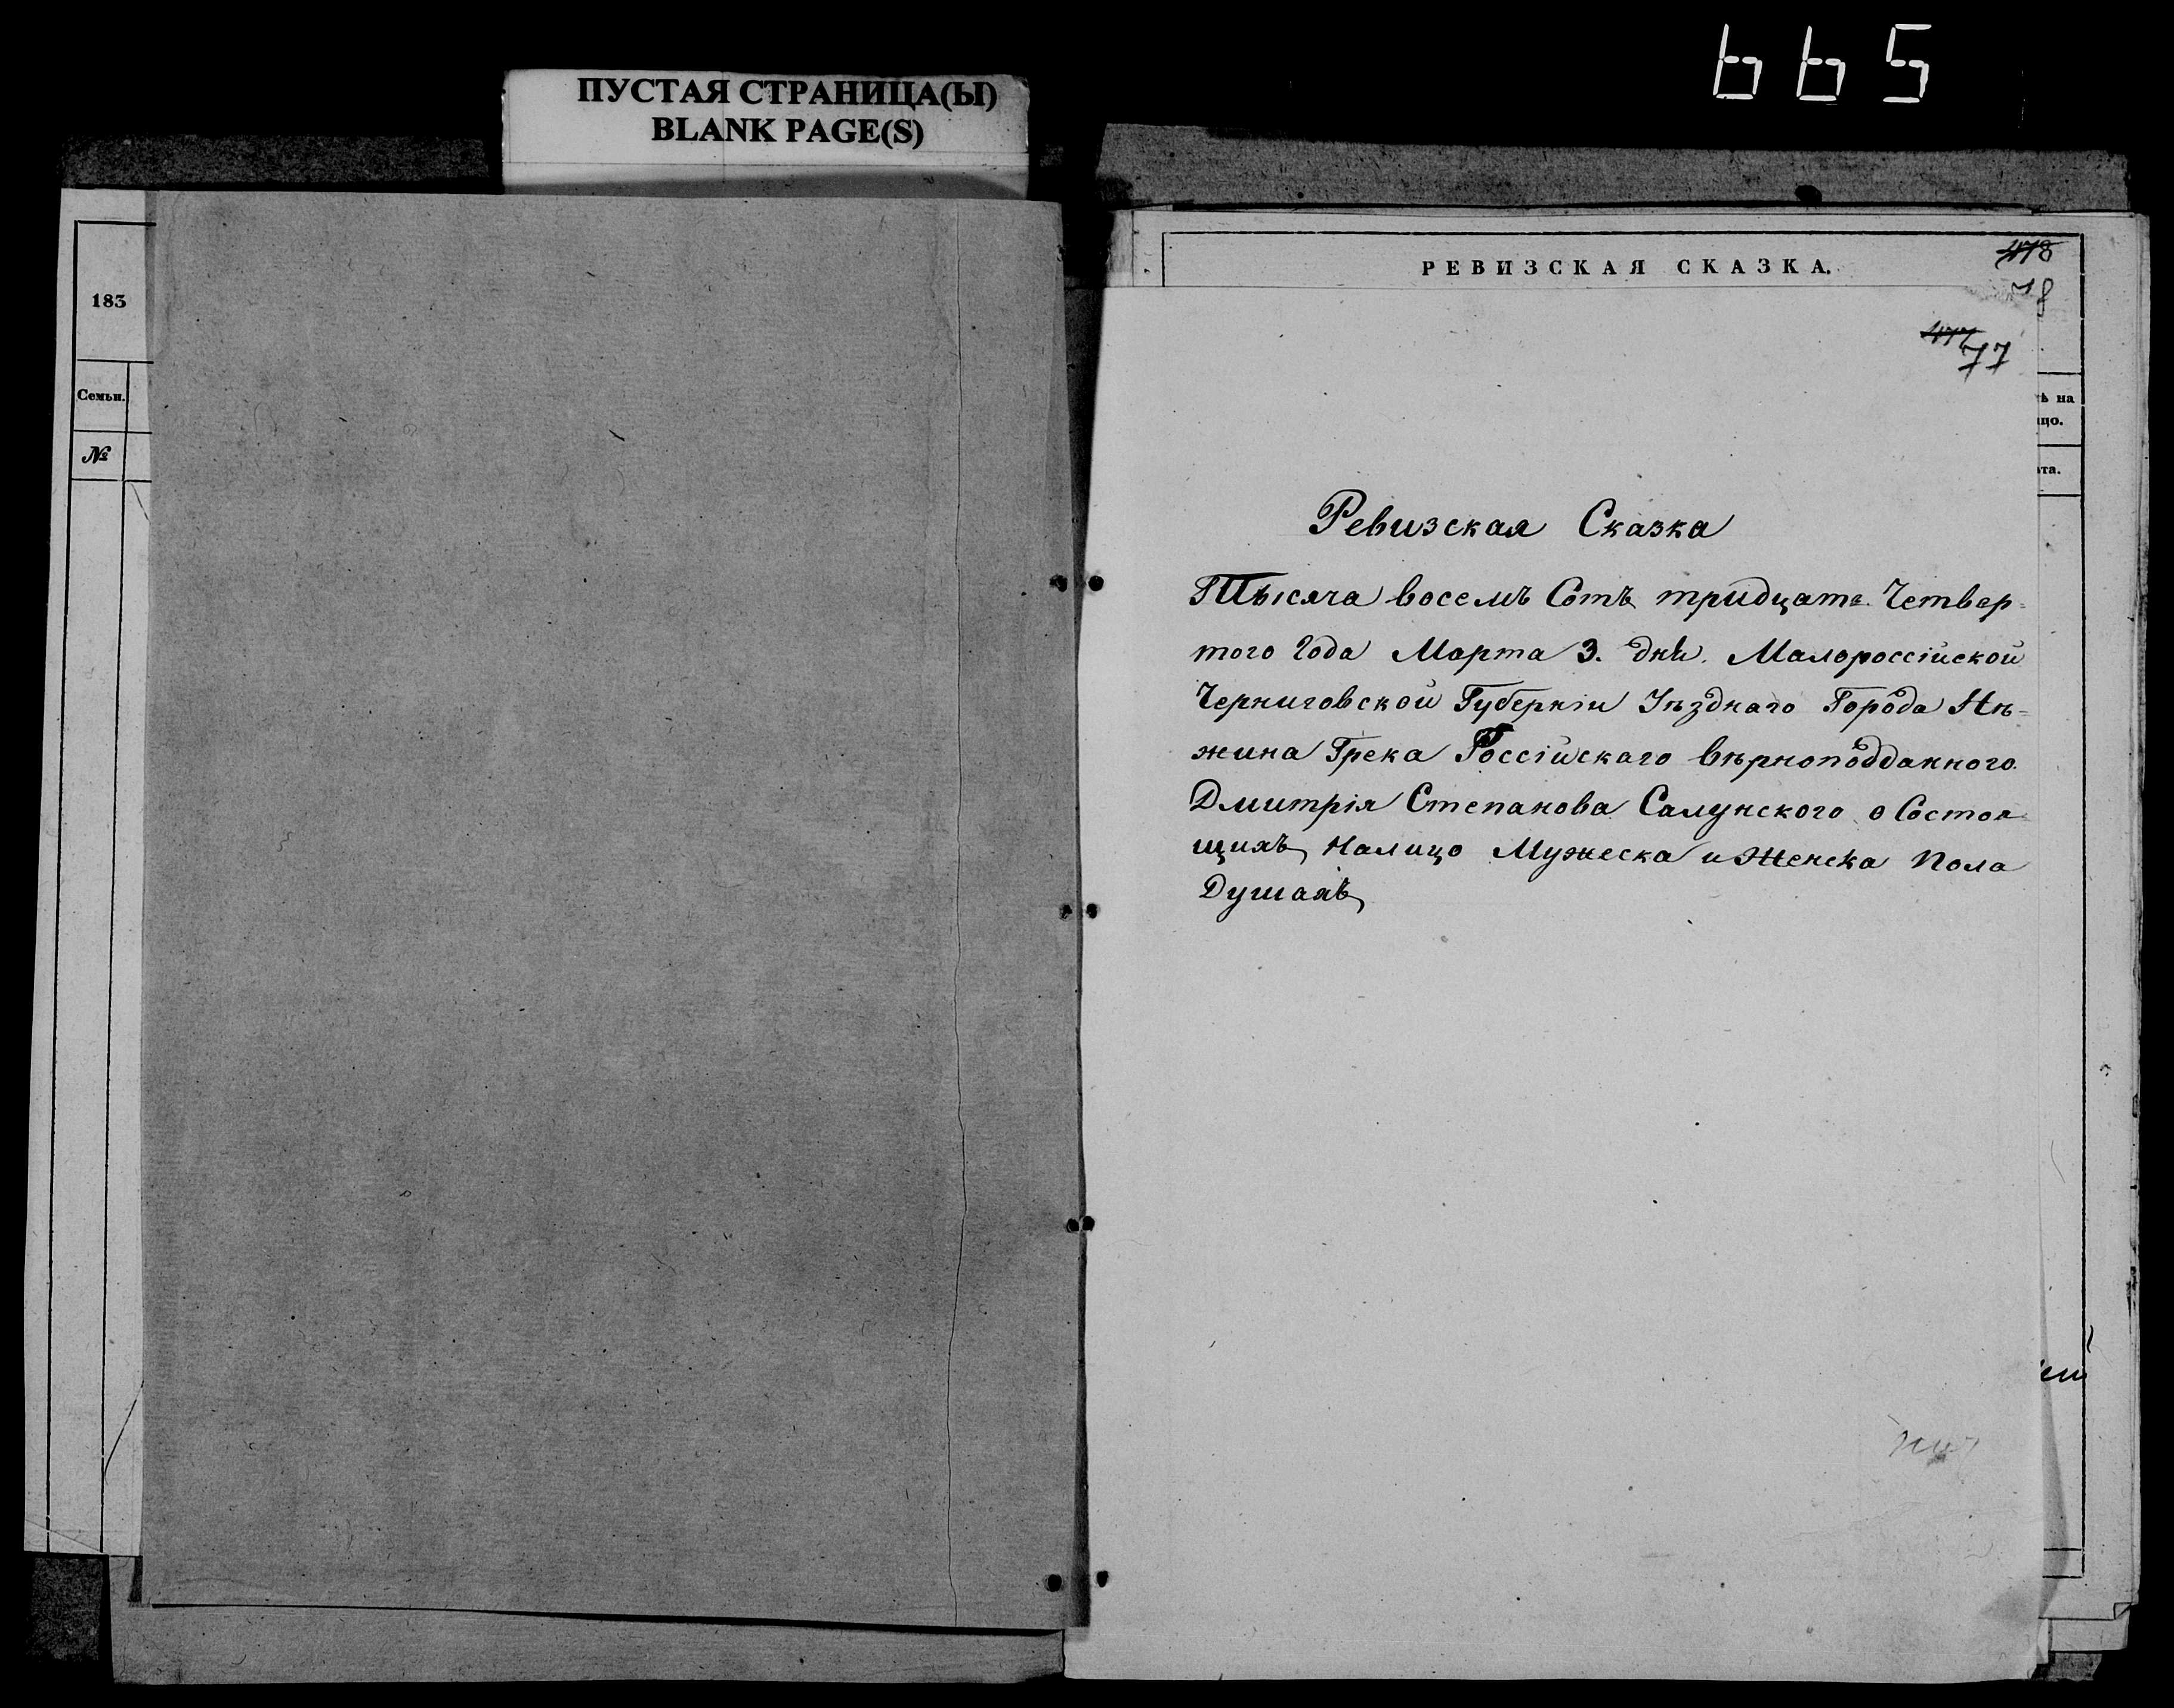 665
ПУСТАЯ СТРАНИЦА(Ы)
BLANK PAGE(S)
183
Семьи.
№
РЕВИЗСКАЯ СКАЗКА.
478
78
477
77
ѣ на
цо.
ѣта.
Ревизская Сказка
Тысяча восемъ Сотъ тридцать Четвер=
того Года Марта 3. дня. Малороссійской
Черниговской Губерніи Уѣзднаго Города Нѣ=
жина Грека Россійскаго вѣрноподданного
Дмитрія Степанова Салунского о Состоя=
щихъ Налицо Мужеска и Женска Пола
Душахъ